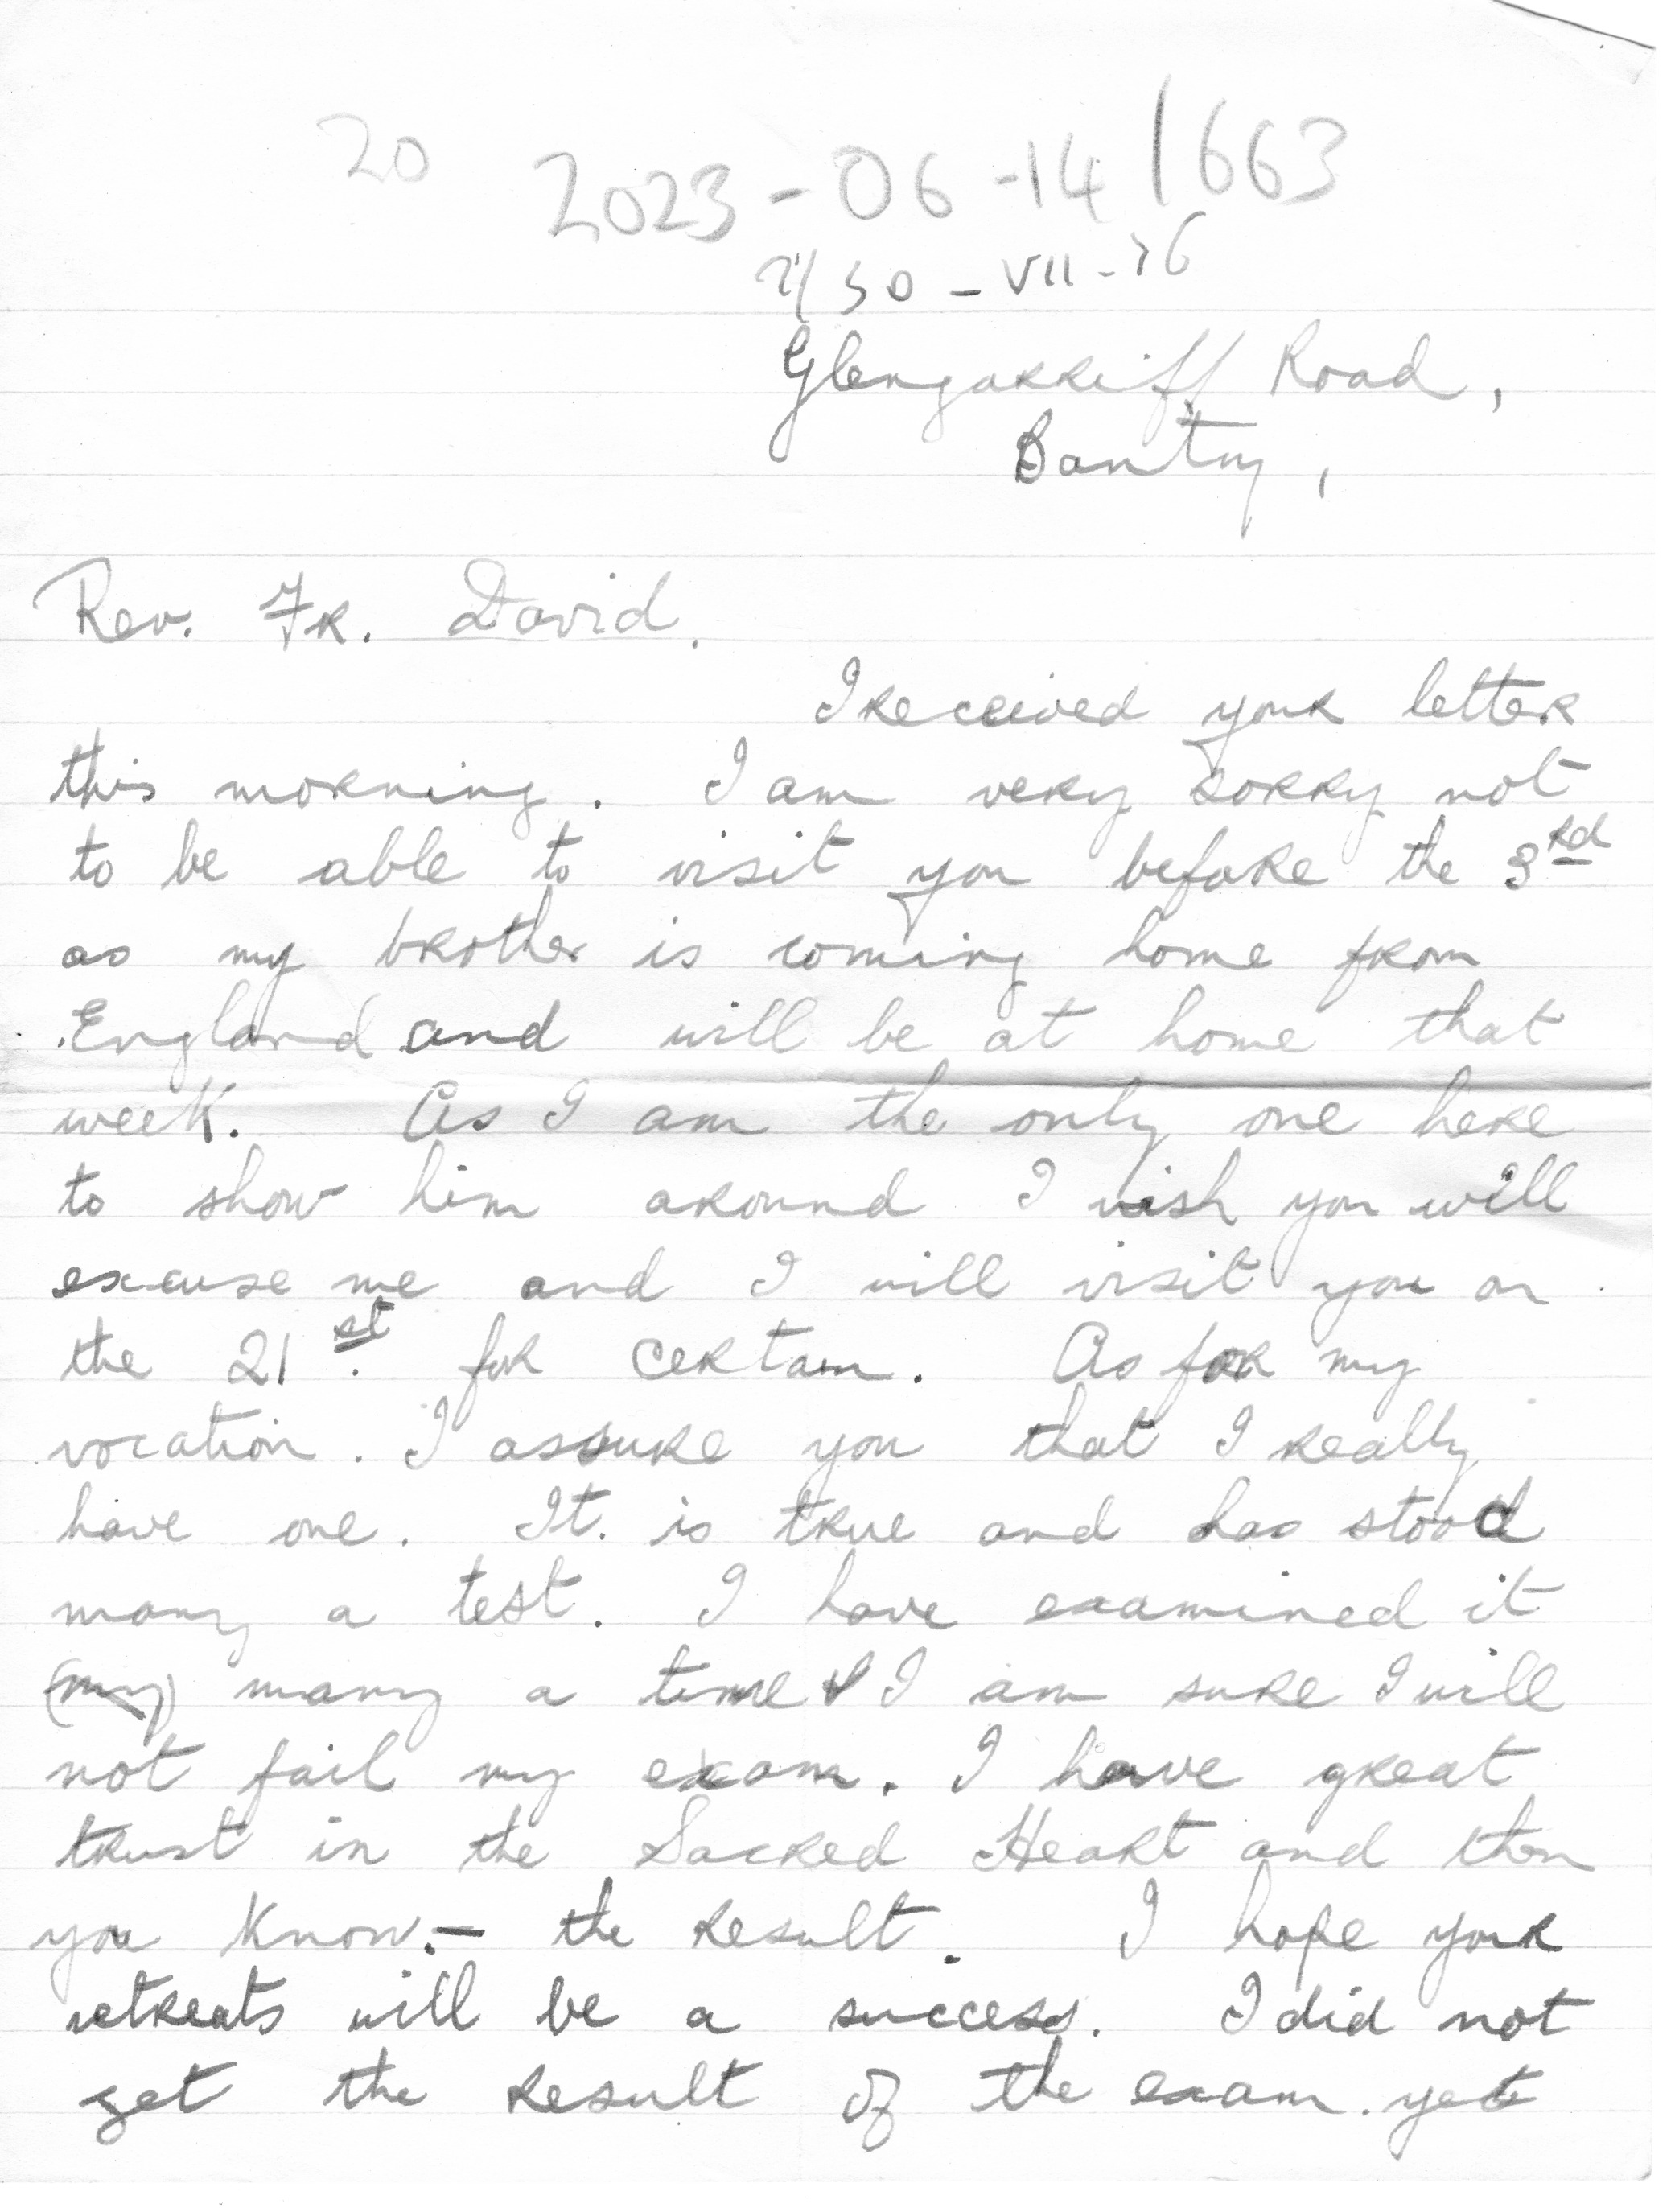 20 2023-06-14/663
30-VII-76
Glengarriff Road,
Bantry,
Rev. Fr. David.
I received your letter
this morning. I am very sorry not
to be able to visit you before the 3rd
as my brother is coming home from
England and will be at home that
week. As I am the only one here
to show him around I wish you will
excuse me and I will visit you on
the 21st. for certain. As for my
vocation. I assure you that I really
have one. It. is true and has stood
many a test. I have examined it
(my) many a time & I am sure I will
not fail my exam. I have great
trust in the Sacred Heart and then
you know.- the result. I hope your
retreats will be a success. I did not
get the result of the exam. yet